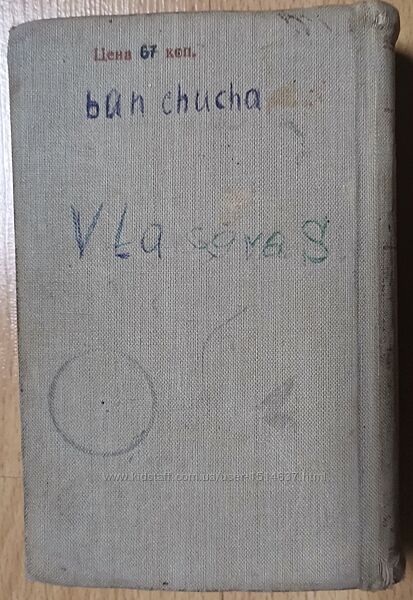 Цена 67 коп.
ban chucha
Vlasova S
www.kidstaff.com.ua/user-1514637.html